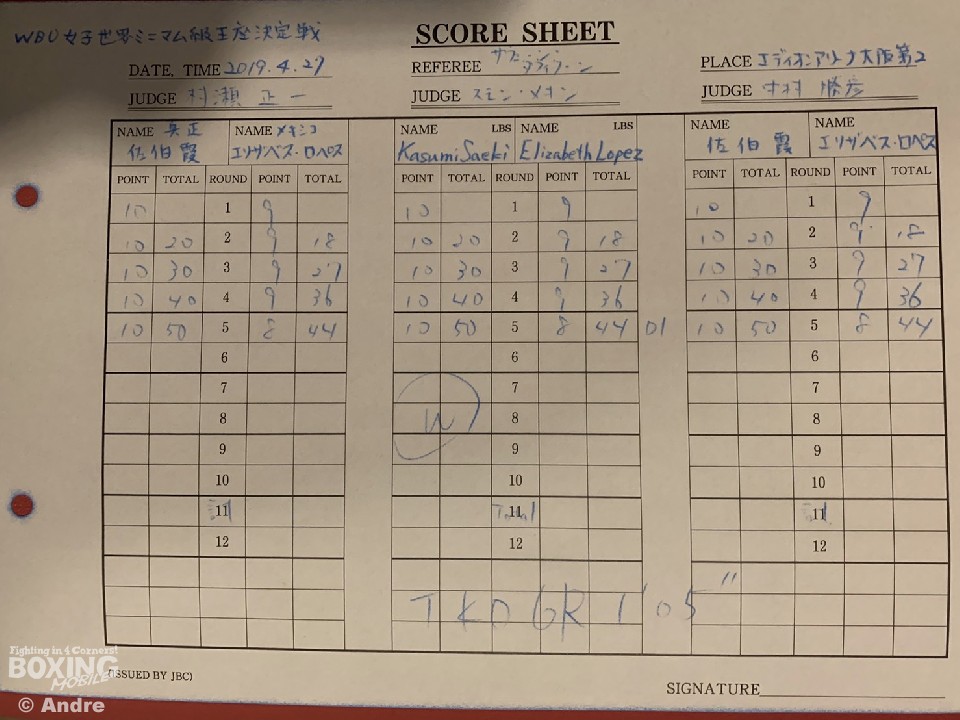 WBO女子世界ミニマム級王座決定戦
SCORE SHEET
DATE, TIME 2019.4.27
REFEREE
PLACE エディオンアリーナ大阪第2
JUDGE 村瀬 正一
JUDGE
JUDGE 中村 勝彦
NAME 真正 NAME メキシコ
佐伯霞 エリザベス・ロペス
NAME LBS NAME LBS
Kasumi Saeki Elizabeth Lopez
NAME NAME
佐伯 霞 エリザベス・ロペス
POINT TOTAL ROUND POINT TOTAL POINT TOTAL ROUND POINT TOTAL POINT TOTAL ROUND POINT TOTAL
10 1 9 10 1 9 10 1 9
10 20 2 9 18 10 20 2 9 18 10 20 2 9 18
10 30 3 9 27 10 30 3 9 27 10 30 3 9 27
10 40 4 9 36 10 40 4 9 36 10 40 4 9 36
10 50 5 8 44 10 50 5 8 44 D1 10 50 5 8 44
6 6 6
7 7 7
W
8 8 8
9 9 9
10 10 10
計 11 Total 11 計 11
12 12 12
TKO 6R 1'05"
Fighting in 4 Corners!
BOXING
MOBILE
(ISSUED BY JBC)
SIGNATURE
© Andre